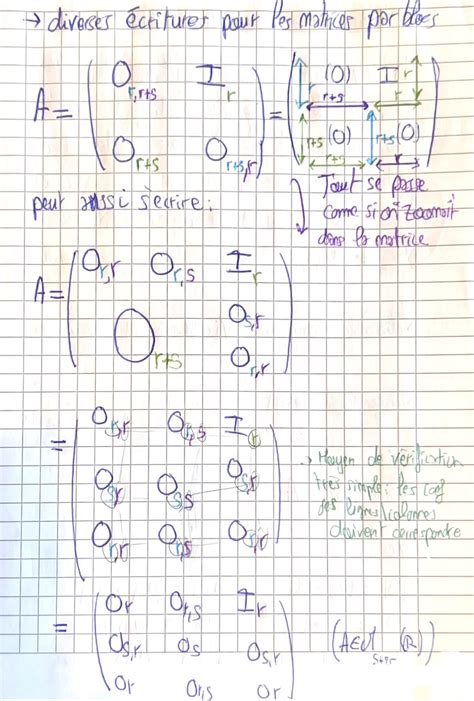 → diverses écritures pour les matrices par blocs
A = ( O_{r,r+s} I_r ; O_{r+s} O_{r+s,r} ) = ( r (0) r+s I r r ; r+s (0) r+s r+s (0) r )
peut aussi s'écrire :
Tout se passe
comme si on "zoomait"
dans la matrice
A = ( O_{r,r} O_{r,s} I_r ; O_{r+s} O_{s,r} ; O_{r,r} )
= ( O_{r,r} O_{r,s} I_r ; O_{s,r} O_{s,s} O_{s,r} ; O_{r,r} O_{r,s} O_{r,r} )
→ Moyen de vérification
très simple : les
des lignes/colonnes
doivent correspondre
= ( O_r O_{r,s} I_r ; O_{s,r} O_s O_{s,r} ; O_r O_{r,s} O_r ) (A ∈ M (R))